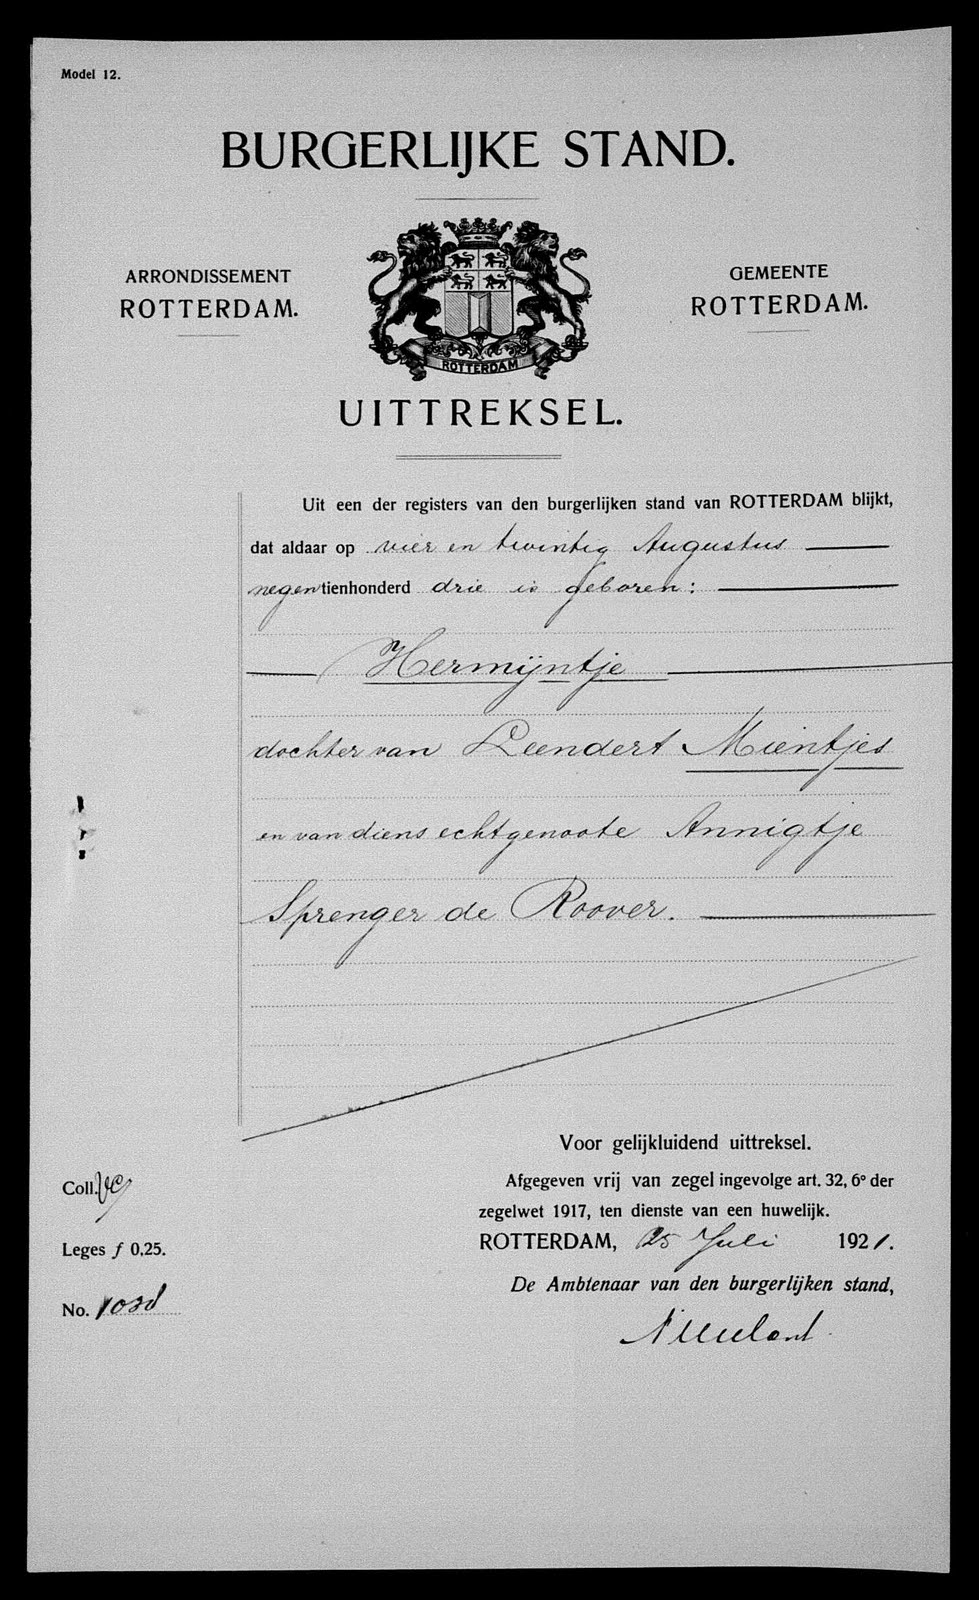 Model 12.
BURGERLIJKE STAND.
ARRONDISSEMENT
ROTTERDAM.
GEMEENTE
ROTTERDAM.
ROTTERDAM
UITTREKSEL.
Uit een der registers van den burgerlijken stand van ROTTERDAM blijkt,
dat aldaar op vier en twintig Augustus
negentienhonderd drie is geboren:
Hermijntje
dochter van Leendert Mientjes
en van diens echtgenoote Annigtje
Sprenger de Roover.
Voor gelijkluidend uittreksel.
Afgegeven vrij van zegel ingevolge art. 32, 6° der
zegelwet 1917, ten dienste van een huwelijk.
ROTTERDAM, 25 Juli 1921.
De Ambtenaar van den burgerlijken stand,
Coll.
Leges ƒ 0,25.
No.